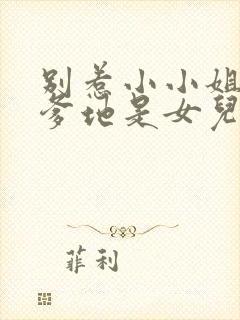 别惹小小姐
爹地是女兒
菲利